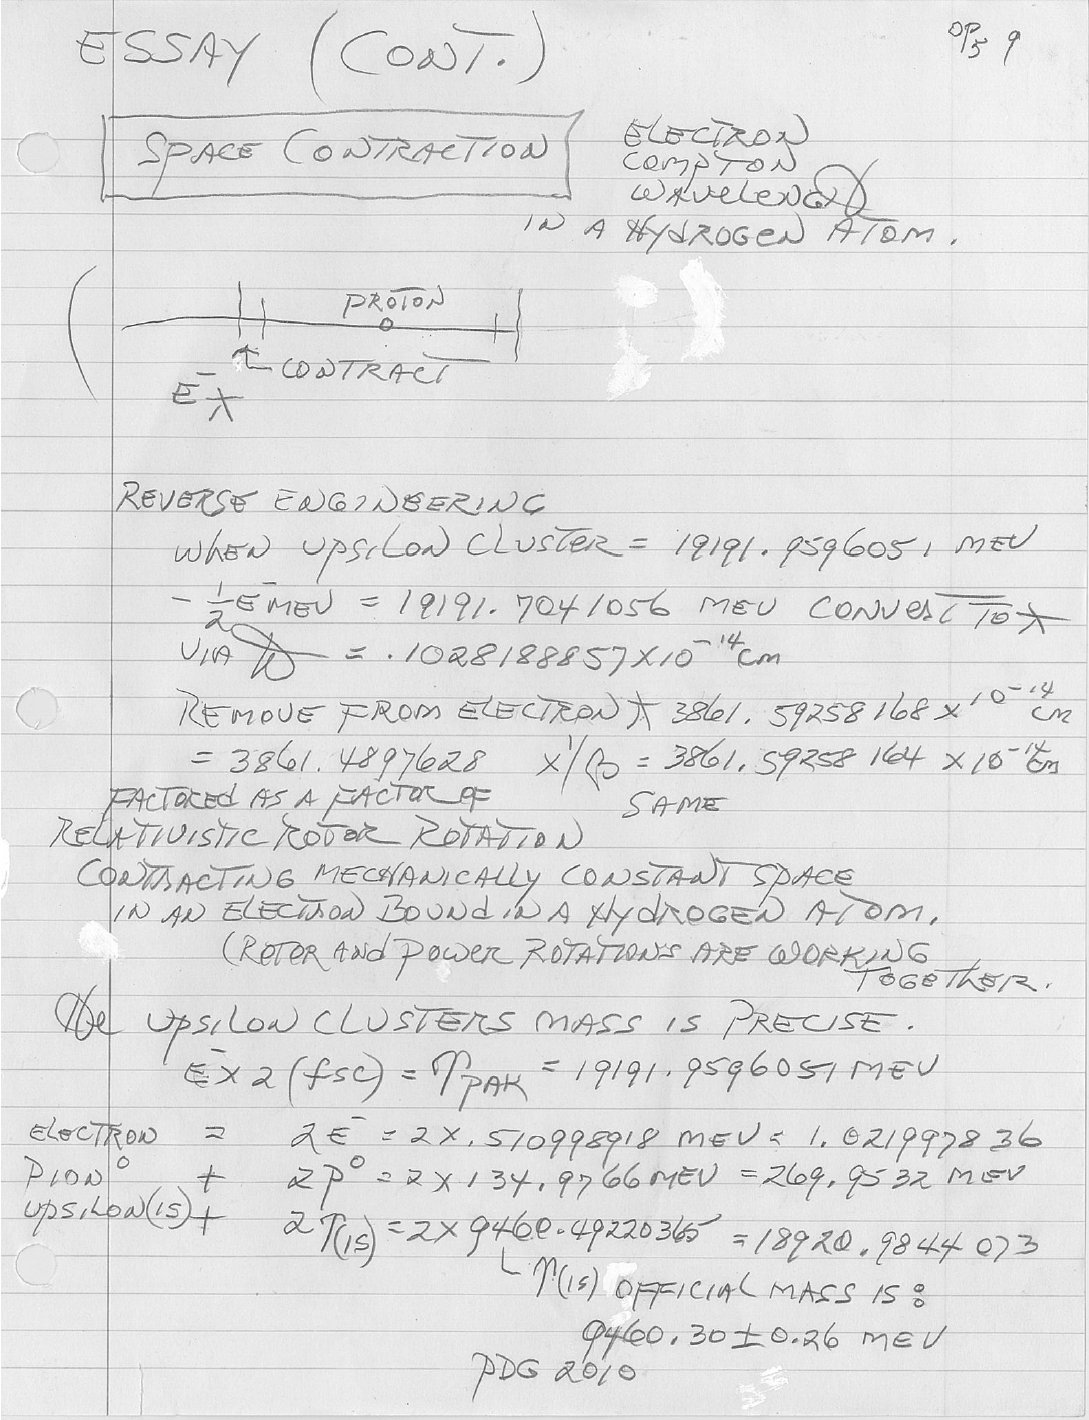 ESSAY (CONT.)
OP5 9
SPACE CONTRACTION
ELECTRON
COMPTON
WAVELENGTH
IN A HYDROGEN ATOM.
PROTON
CONTRACT
E⁻ƛ
REVERSE ENGINEERING
WHEN UPSILON CLUSTER = 19191.9596051 MEV
- 1/2 E⁻MEV = 19191.7041056 MEV CONVERT TO ƛ
VIA = .1028188857 X 10⁻¹⁴ cm
REMOVE FROM ELECTRON ƛ 3861.59258168 X 10⁻¹⁴ cm
= 3861.4897628 X 1/β = 3861.59258164 X 10⁻¹⁴ cm
FACTORED AS A FACTOR OF SAME
RELATIVISTIC ROTOR ROTATION
CONTRACTING MECHANICALLY CONSTANT SPACE
IN AN ELECTRON BOUND IN A HYDROGEN ATOM.
(ROTOR AND POWER ROTATIONS ARE WORKING
TOGETHER.
THE UPSILON CLUSTERS MASS IS PRECISE.
E⁻ X 2 (fsc) = ϒPAK = 19191.9596051 MEV
ELECTRON = 2E⁻ = 2 X .510998918 MEV = 1.021997836
PION° + 2P° = 2 X 134.9766 MEV = 269.9532 MEV
UPSILON(1S) + 2ϒ(1S) = 2 X 9460.49220365 = 18920.9844073
ϒ(1S) OFFICIAL MASS IS:
9460.30 ± 0.26 MEV
PDG 2010